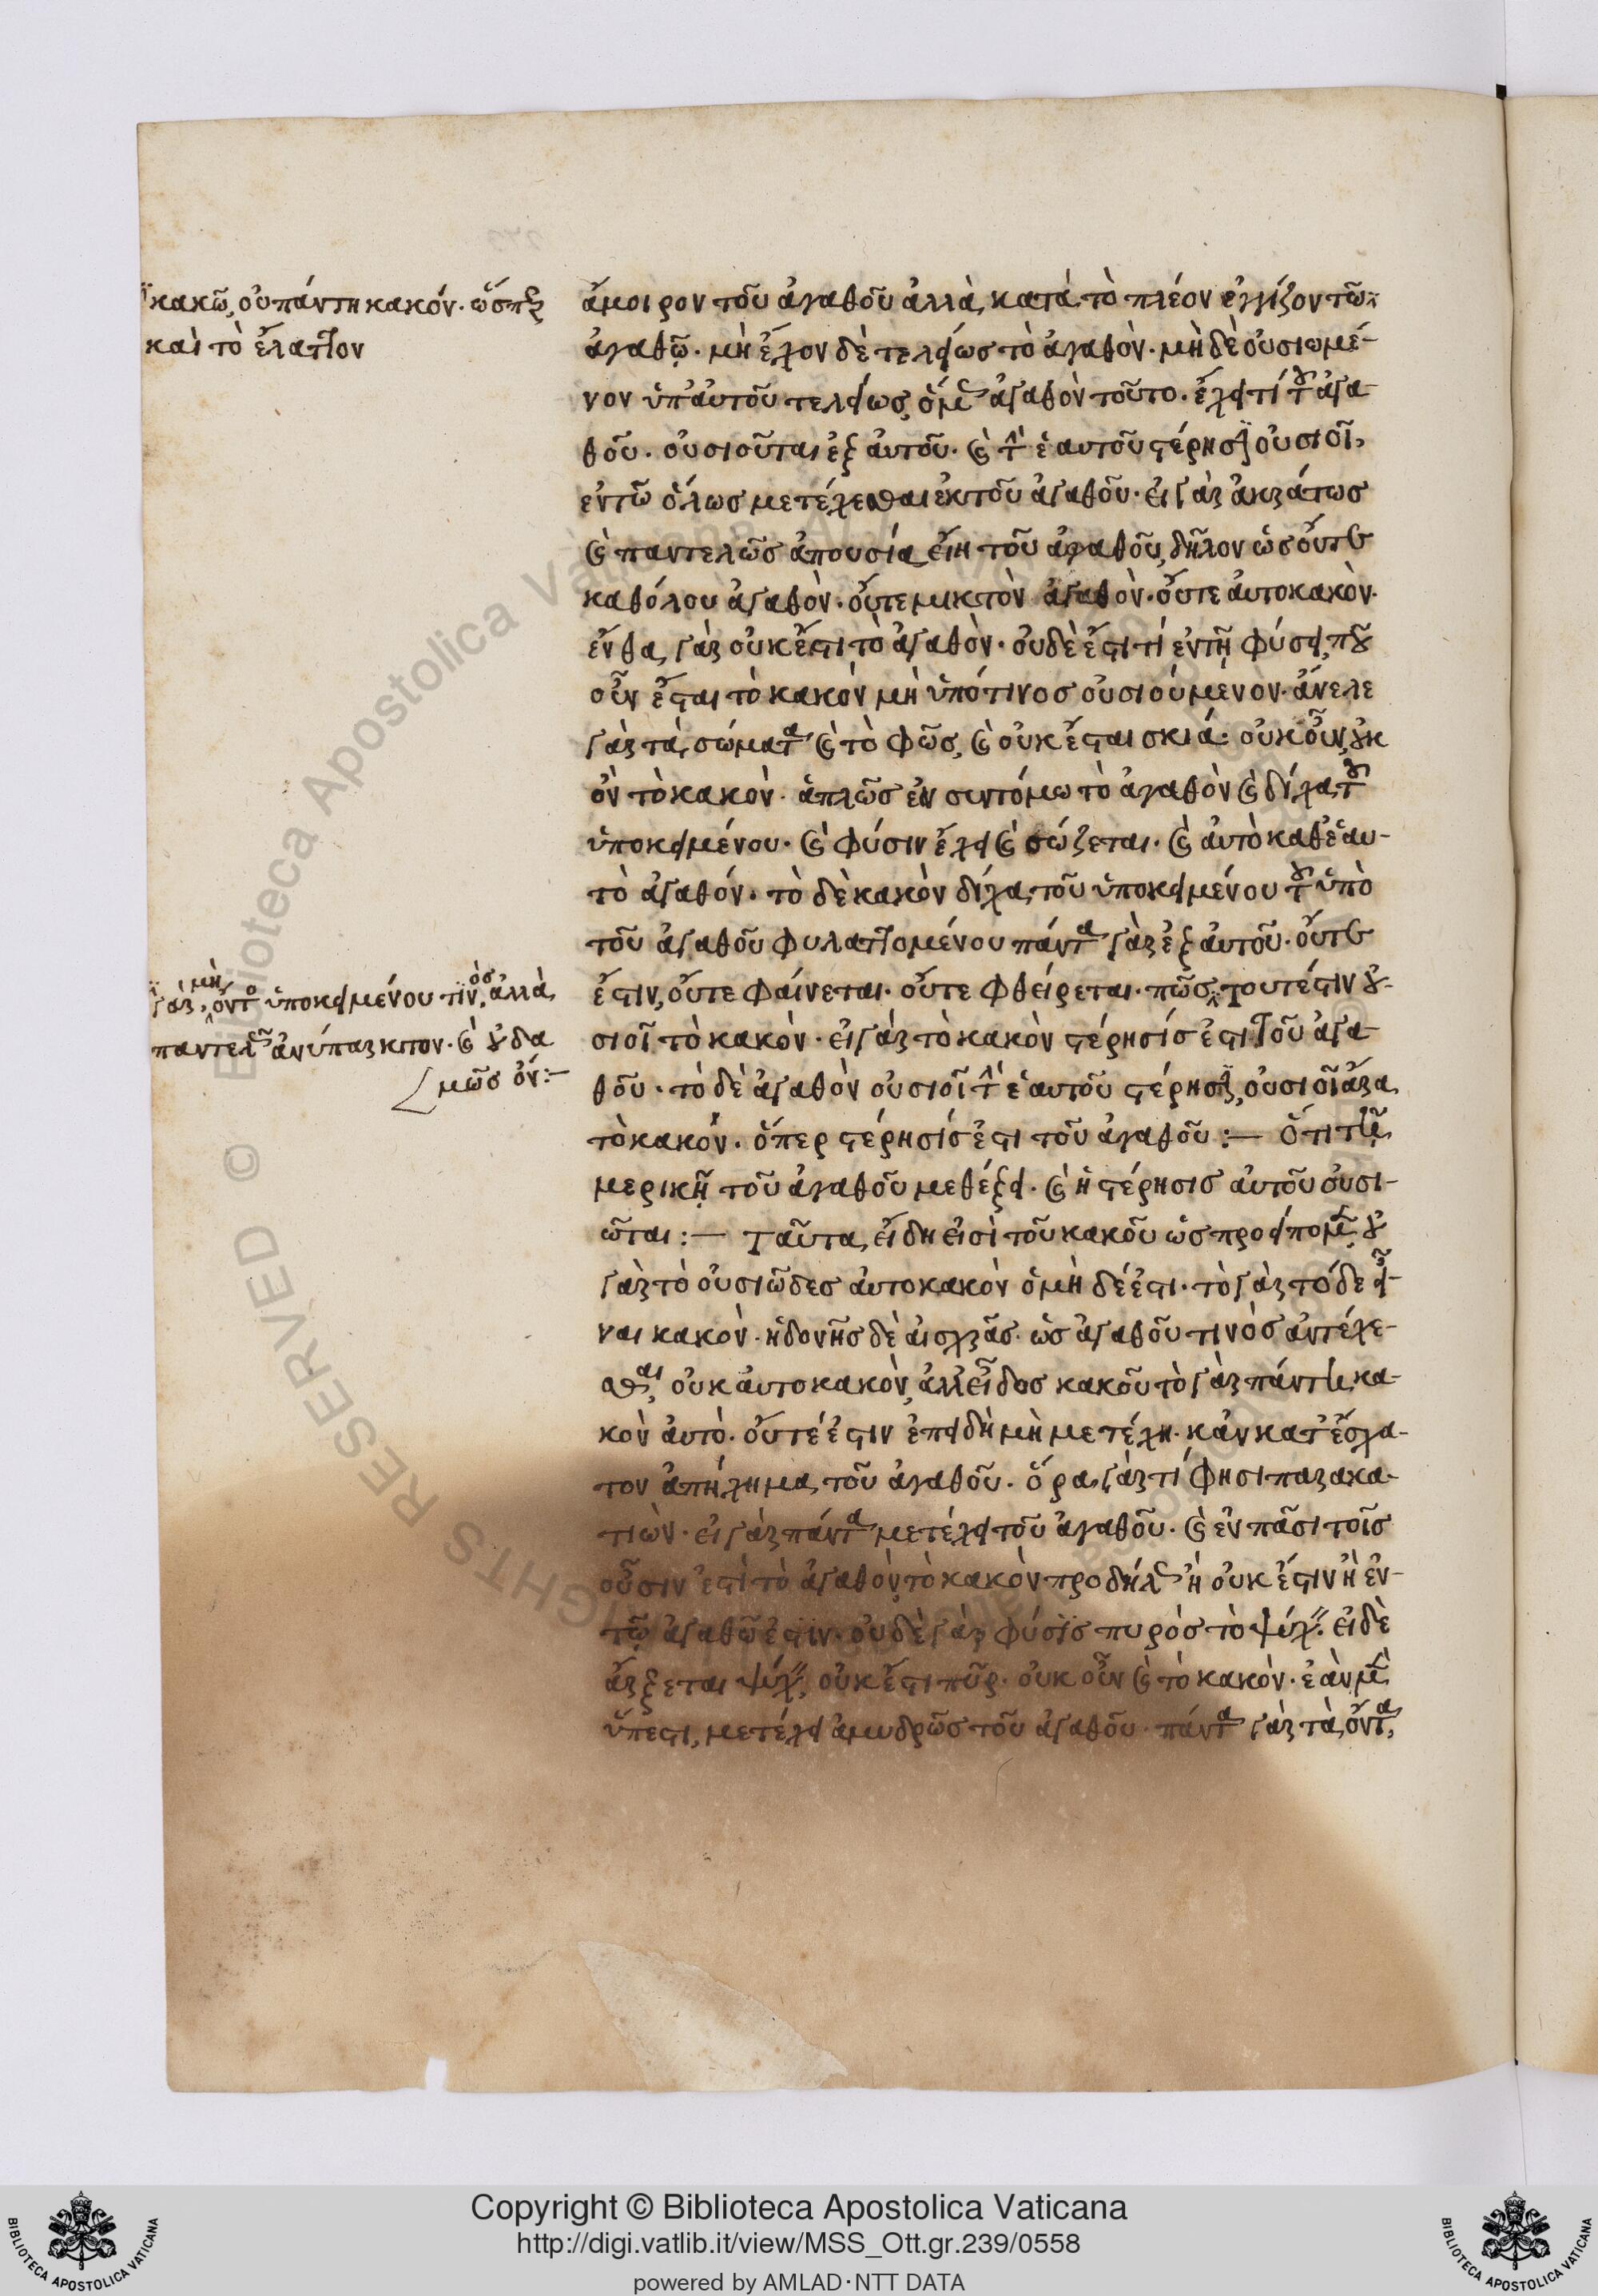 κακῶ, οὐ πάντη κακόν· ὥσπερ
καὶ τὸ ἔλαττον
ἄμοιρον τοῦ ἀγαθοῦ ἀλλὰ κατὰ τὸ πλέον ἐγγίζον τῶ
ἀγαθῷ· μὴ ἔχον δὲ τελείως τὸ ἀγαθὸν· μὴ δὲ οὐσιωμέ-
νον ὑπ' αὐτοῦ τελείως, ὅμως ἀγαθὸν τοῦτο· ἔχει τί τοῦ ἀγα-
θοῦ· οὐσιοῦται ἐξ αὐτοῦ· καὶ τὴν ἑαυτοῦ στέρησιν οὐσιοῖ,
ἐν τῶ ὅλως μετέχεσθαι ἐκ τοῦ ἀγαθοῦ· εἰ γὰρ ἀκράτως
καὶ παντελῶς ἀπουσία εἴη τοῦ ἀγαθοῦ, δῆλον ὡς οὔτε
καθόλου ἀγαθὸν· οὔτε μικτὸν ἀγαθὸν· οὔτε αὐτοκακὸν·
ἔνθα γὰρ οὐκ ἔστι τὸ ἀγαθὸν· οὐδὲ ἔστι τί ἐν τῇ φύσει, ποῦ
οὖν ἔσται τὸ κακὸν μὴ ὑπό τινος οὐσιούμενον· ἄνελε
γὰρ τὰ σώματα καὶ τὸ φῶς, καὶ οὐκ ἔσται σκιά· οὐκ οὖν οὐκ
ὂν τὸ κακὸν· ἁπλῶς ἐν συντόμω τὸ ἀγαθὸν καὶ δίχα τοῦ
ὑποκειμένου· καὶ φύσιν ἔχει καὶ σώζεται· καὶ αὐτὸ καθ' ἑαυ-
τὸ ἀγαθόν· τὸ δὲ κακὸν δίχα τοῦ ὑποκειμένου τοῦ ὑπὸ
τοῦ ἀγαθοῦ φυλαττομένου πάντα γὰρ ἐξ αὐτοῦ· οὔτε
ἔστιν, οὔτε φαίνεται· οὔτε φθείρεται· πῶς τουτέστιν οὐ-
σιοῖ τὸ κακὸν· εἰ γὰρ τὸ κακὸν στέρησίς ἐστι τοῦ ἀγα-
θοῦ· τὸ δὲ ἀγαθὸν οὐσιοῖ τὴν ἑαυτοῦ στέρησιν, οὐσιοῖ ἄρα
τὸ κακόν· ὅπερ στέρησίς ἐστι τοῦ ἀγαθοῦ :— Ὅτι τῇ
μερικῇ τοῦ ἀγαθοῦ μεθέξει· καὶ ἡ στέρησις αὐτοῦ οὐσι-
ῶται :— Ταῦτα εἴδη εἰσὶ τοῦ κακοῦ ὡς προείπομεν, οὐ
γὰρ τὸ οὐσιῶδες αὐτοκακὸν ὁ μὴ δέ ἐστι· τὸ γὰρ τόδε εἶ-
ναι κακὸν· ἡδονῆς δὲ αἰσχρᾶς· ὡς ἀγαθοῦ τινὸς ἀντέχε-
σθαι, οὐκ αὐτοκακὸν, ἀλλ' εἶδος κακοῦ τὸ γὰρ πάντη κα-
κὸν αὐτὸ· οὔτέ ἐστιν ἐπειδὴ μὴ μετέχη· κἂν κατ' ἔσχα-
τον ἀπήχημα τοῦ ἀγαθοῦ· ὅρα γὰρ τί φησι παρακα-
τιὼν· εἰ γὰρ πάντα μετέχει τοῦ ἀγαθοῦ· καὶ ἐν πᾶσι τοῖς
οὖσιν ἐστὶ τὸ ἀγαθὸν, τὸ κακὸν προδήλως ἢ οὐκ ἔστιν ἢ ἐν
τῷ ἀγαθῷ ἐστιν· οὐδὲ γὰρ φύσις πυρὸς τὸ ψύχειν· εἰ δὲ
ἄρξεται ψύχειν, οὐκ ἔστι πῦρ· οὐκ οὖν καὶ τὸ κακὸν· ἐὰν μὲν
ὕπεστι, μετέχει ἀμυδρῶς τοῦ ἀγαθοῦ· πάντα γὰρ τὰ ὄντα,
γὰρ, μὴ ὄντος ὑποκειμένου τινὸς, ἀλλὰ
παντελῶς ἀνύπαρκτον· καὶ οὐδα
μῶς ὄν:—
Copyright © Biblioteca Apostolica Vaticana
http://digi.vatlib.it/view/MSS_Ott.gr.239/0558
powered by AMLAD·NTT DATA
BIBLIOTECA APOSTOLICA VATICANA
BIBLIOTECA APOSTOLICA VATICANA